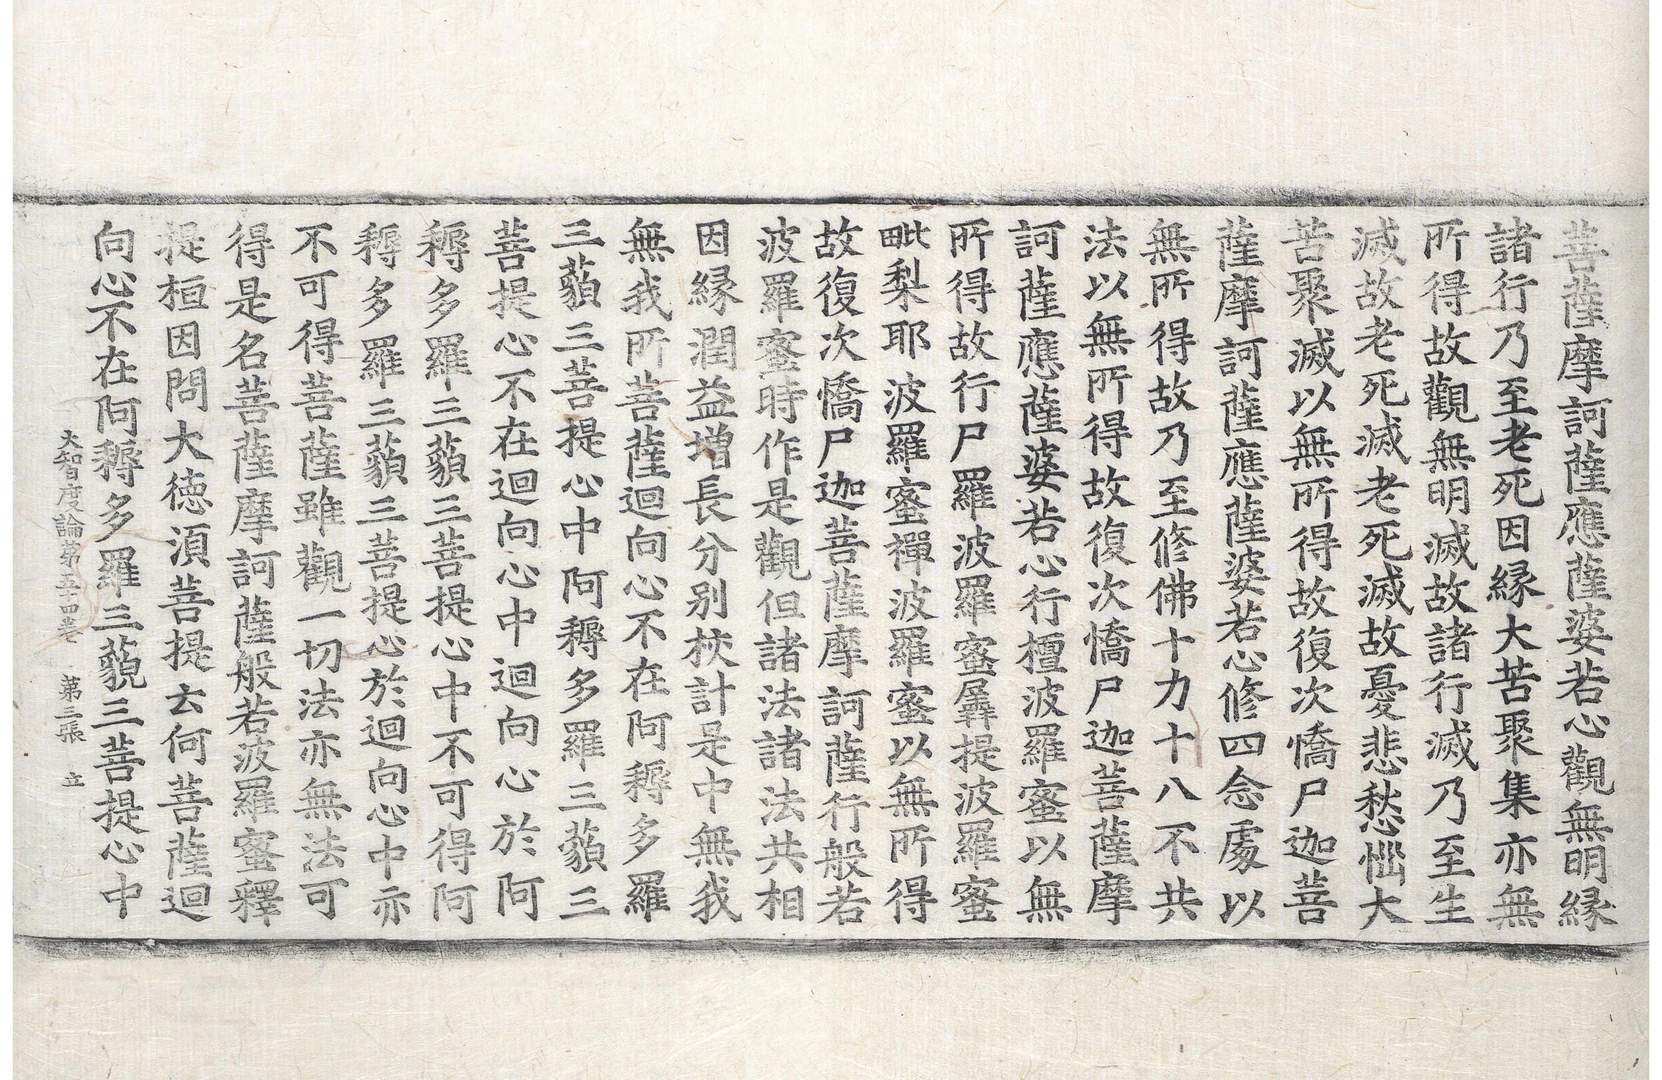 菩薩摩訶薩應薩婆若心觀無明緣
諸行乃至老死因緣大苦聚集亦無
所得故觀無明滅故諸行滅乃至生
滅故老死滅老死滅故憂悲愁惱大
苦聚滅以無所得故復次憍尸迦菩
薩摩訶薩應薩婆若心修四念處以
無所得故乃至修佛十力十八不共
法以無所得故復次憍尸迦菩薩摩
訶薩應薩婆若心行檀波羅蜜以無
所得故行尸羅波羅蜜羼提波羅蜜
毗梨耶波羅蜜禪波羅蜜以無所得
故復次憍尸迦菩薩摩訶薩行般若
波羅蜜時作是觀但諸法諸法共相
因緣潤益增長分別挍計是中無我
無我所菩薩迴向心不在阿耨多羅
三藐三菩提心中阿耨多羅三藐三
菩提心不在迴向心中迴向心於阿
耨多羅三藐三菩提心中不可得阿
耨多羅三藐三菩提心於迴向心中亦
不可得菩薩雖觀一切法亦無法可
得是名菩薩摩訶薩般若波羅蜜釋
提桓因問大德須菩提云何菩薩迴
向心不在阿耨多羅三藐三菩提心中
大智度論第五十四卷 第三張 立